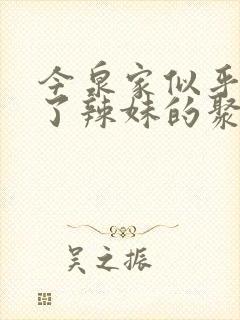 今泉家似乎
了辣妹的聚
吴之振